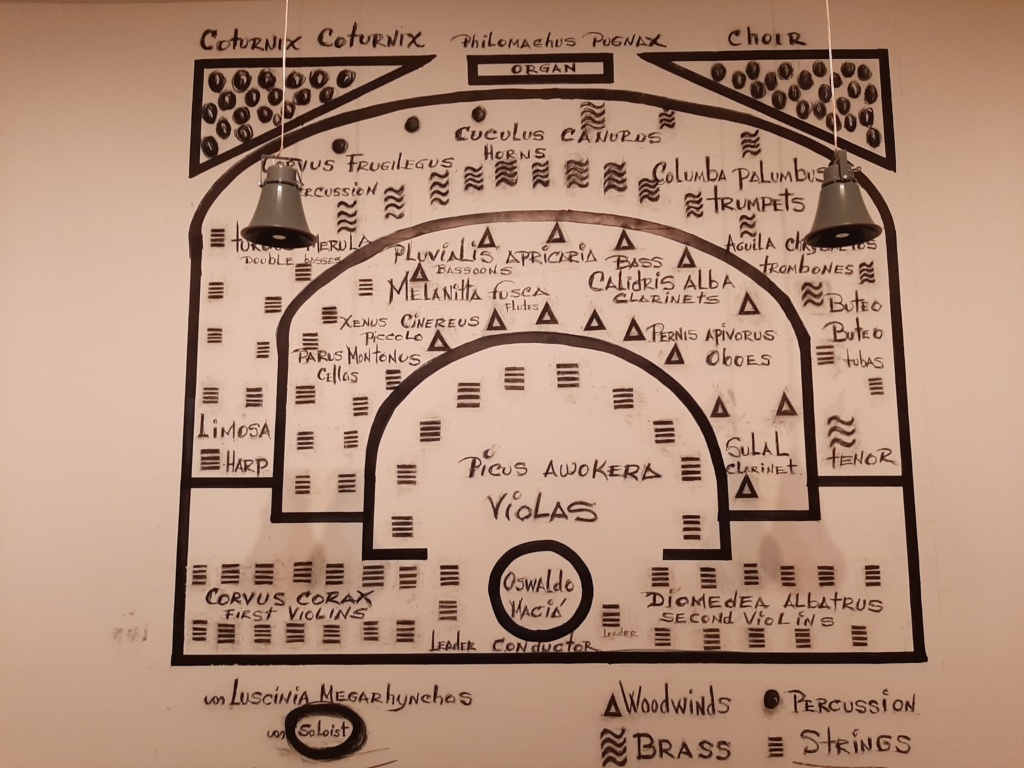 COTURNIX COTURNIX
PHILOMACHUS PUGNAX
CHOIR
ORGAN
CUCULUS CANORUS
HORNS
CORVUS FRUGILEGUS
PERCUSSION
COLUMBA PALUMBUS
TRUMPETS
MERULA
DOUBLE BASSES
PLUVIALIS APRICARIA
BASSOONS
BASS
CALIDRIS ALBA
CLARINETS
AQUILA
TROMBONES
MELANITTA FUSCA
FLUTES
BUTEO
BUTEO
TUBAS
XENUS CINEREUS
PICCOLO
PERNIS APIVORUS
OBOES
PARUS MONTONUS
CELLOS
LIMOSA
HARP
PICUS AWOKERA
VIOLAS
SULA L
CLARINET
TENOR
CORVUS CORAX
FIRST VIOLINS
OSWALDO
MACIÁ
DIOMEDEA ALBATRUS
SECOND VIOLINS
LEADER
CONDUCTOR
LEADER
LUSCINIA MEGARHYNCHOS
SOLOIST
WOODWINDS
PERCUSSION
BRASS
STRINGS